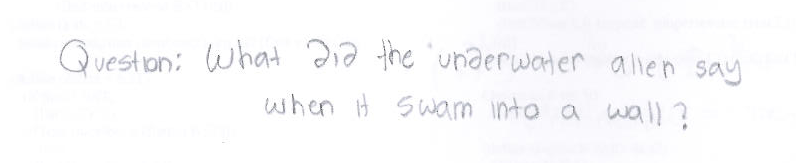 Question: What did the underwater alien say
when it swam into a wall?